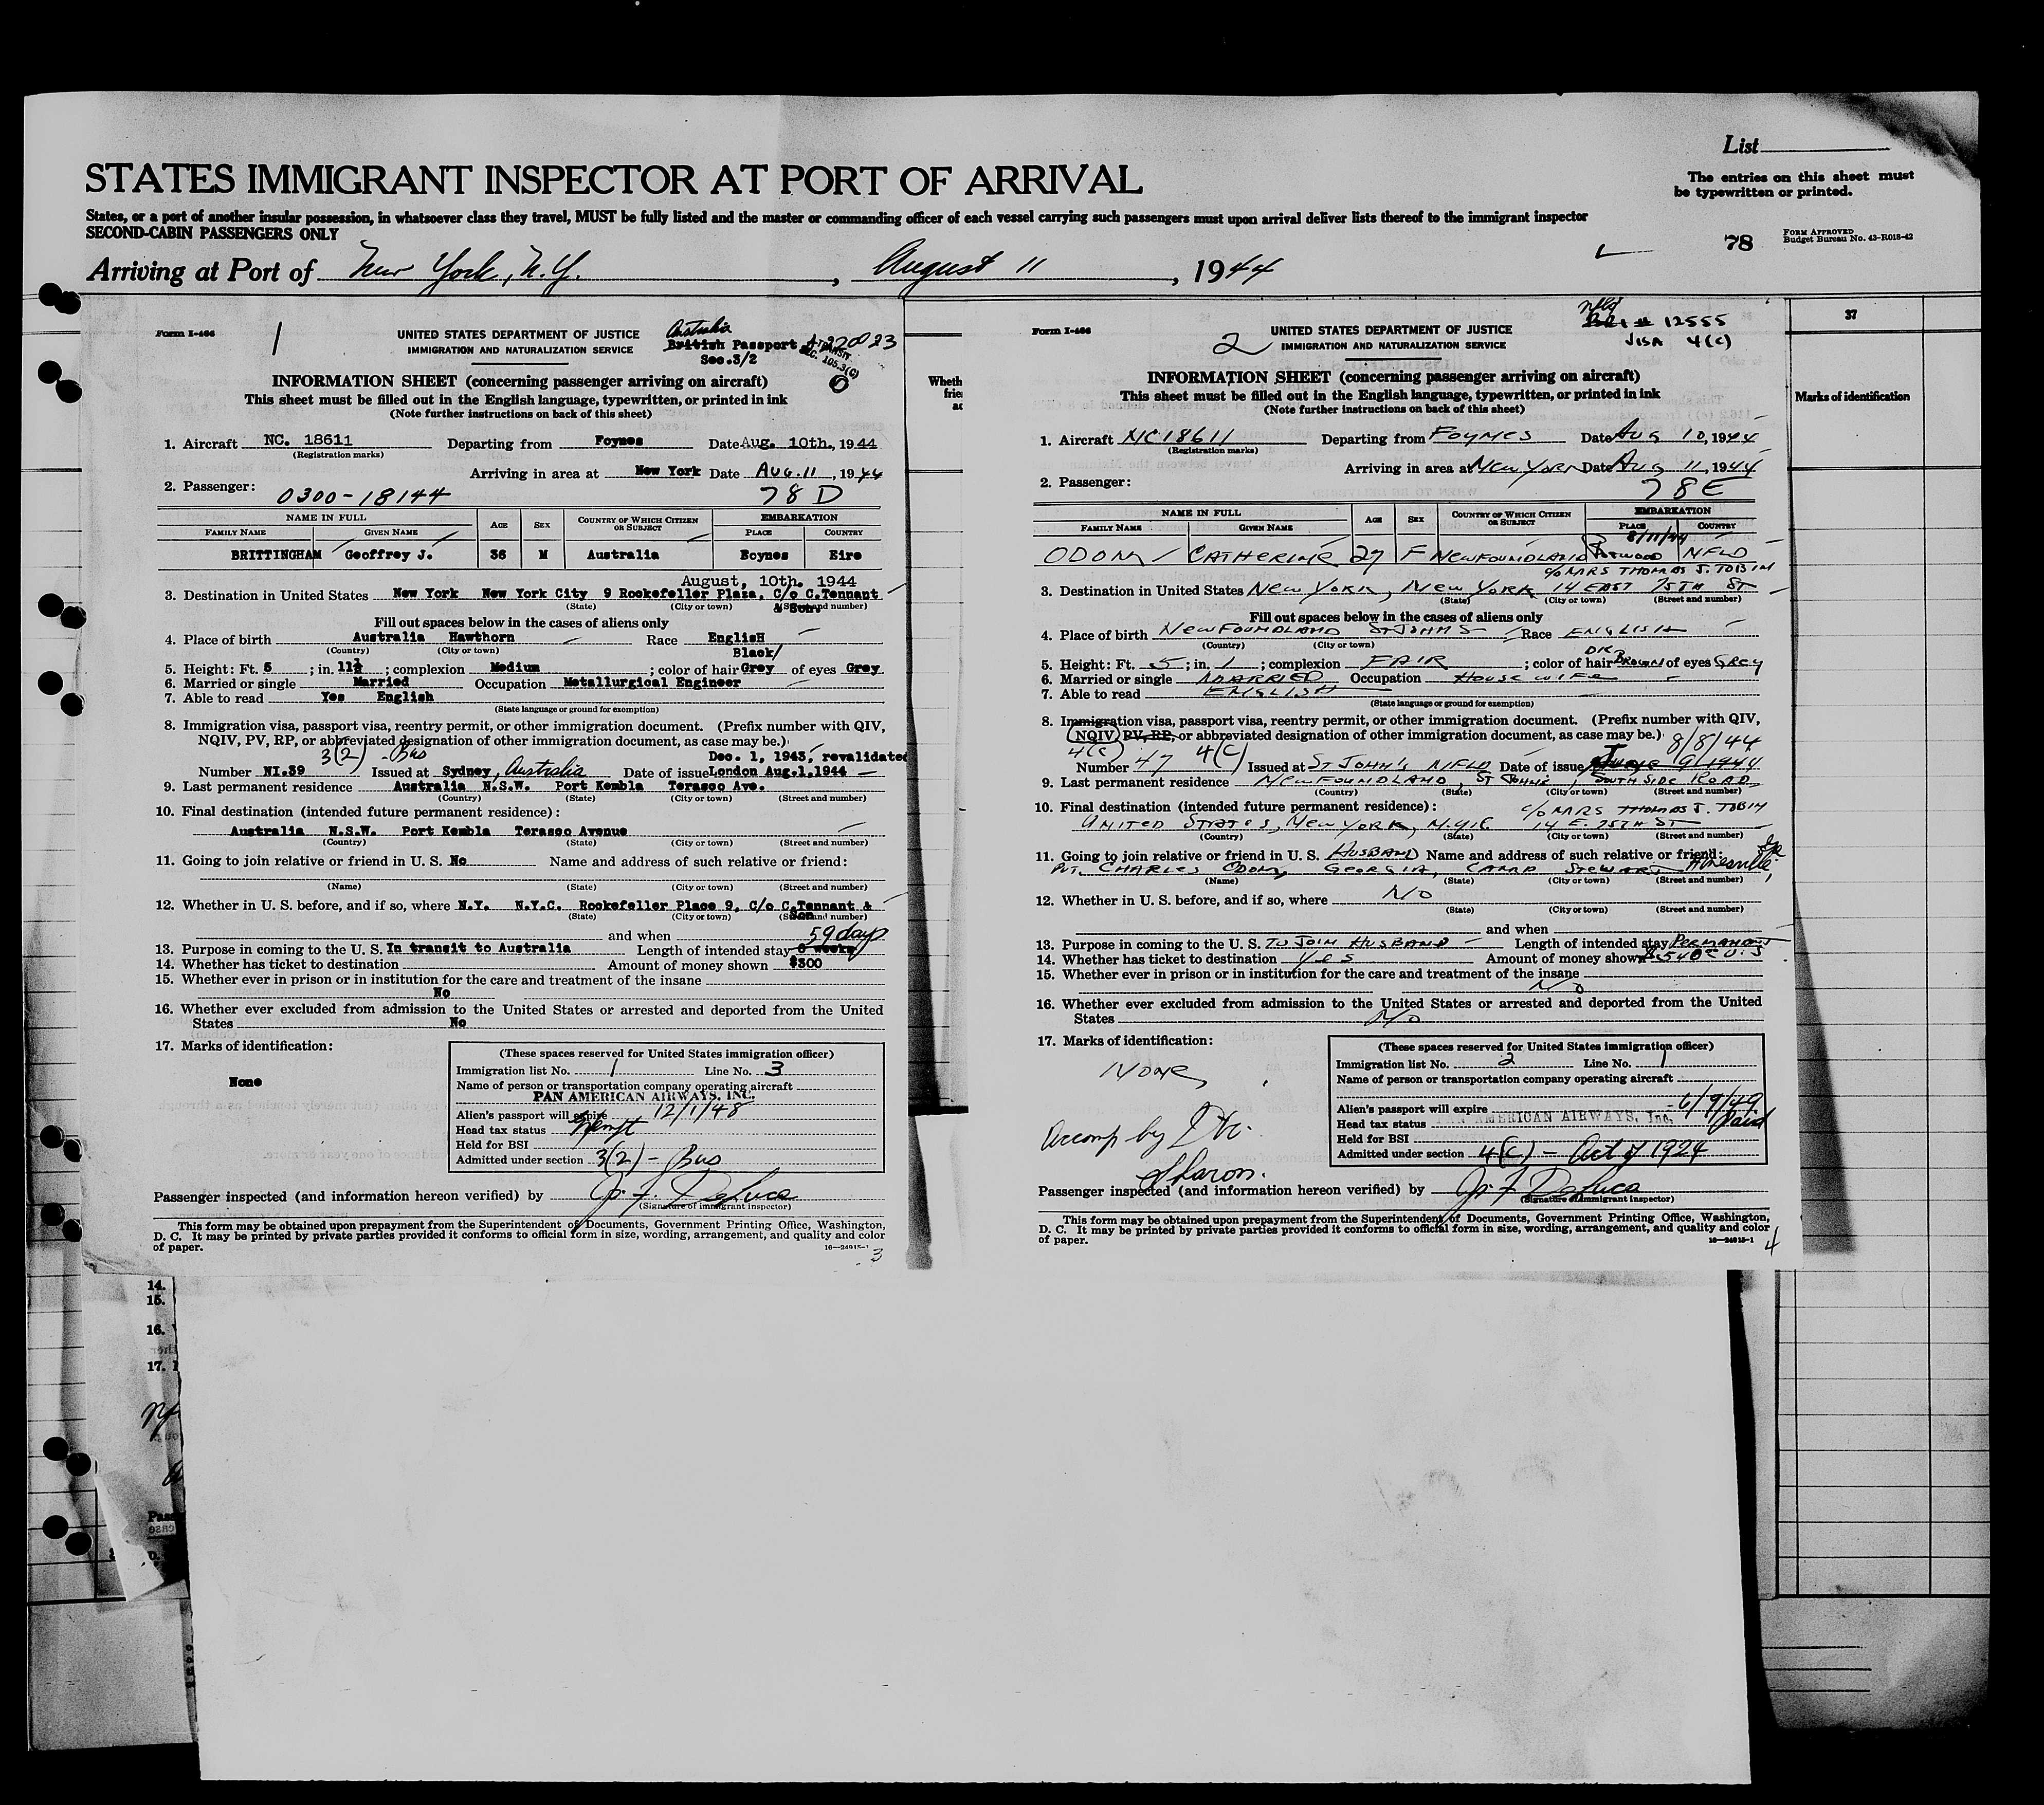 List
STATES IMMIGRANT INSPECTOR AT PORT OF ARRIVAL
The entries on this sheet must
be typewritten or printed.
States, or a port of another insular possession, in whatsoever class they travel, MUST be fully listed and the master or commanding officer of each vessel carrying such passengers must upon arrival deliver lists thereof to the immigrant inspector
SECOND-CABIN PASSENGERS ONLY
78
FORM APPROVED
Budget Bureau No. 43-R018-42
Arriving at Port of New York, N.Y., August 11, 1944
Form I-466
1
UNITED STATES DEPARTMENT OF JUSTICE
IMMIGRATION AND NATURALIZATION SERVICE
Australia
British Passport
Sec.3/2
INFORMATION SHEET (concerning passenger arriving on aircraft)
This sheet must be filled out in the English language, typewritten, or printed in ink
(Note further instructions on back of this sheet)
1. Aircraft NC. 18611 Departing from Foynes Date Aug. 10th, 1944
(Registration marks)
Arriving in area at New York Date AUG. 11, 1944
2. Passenger: 0300-18144 78 D
NAME IN FULL AGE SEX COUNTRY OF WHICH CITIZEN OR SUBJECT EMBARKATION
FAMILY NAME GIVEN NAME PLACE COUNTRY
BRITTINGHAM Geoffrey J. 36 M Australia Foynes Eire
August, 10th. 1944
3. Destination in United States New York New York City 9 Rockefeller Plaza. C/o C.Tennant
(State) (City or town) (Street and number)
& Son
Fill out spaces below in the cases of aliens only
4. Place of birth Australia Hawthorn Race EnglisH
(Country) (City or town)
Black/
5. Height: Ft. 5; in. 11½; complexion Medium; color of hair Grey of eyes Grey
6. Married or single Married Occupation Metallurgical Engineer
7. Able to read Yes English
(State language or ground for exemption)
8. Immigration visa, passport visa, reentry permit, or other immigration document. (Prefix number with QIV,
NQIV, PV, RP, or abbreviated designation of other immigration document, as case may be.)
3(2) - Bus Dec. 1, 1943, revalidated
Number NI.39 Issued at Sydney, Australia Date of issue London Aug.1,1944
9. Last permanent residence Australia N.S.W. Port Kembla Terasco Ave.
(Country) (State) (City or town) (Street and number)
10. Final destination (intended future permanent residence):
Australia N.S.W. Port Kembla Terasco Avenue
(Country) (State) (City or town) (Street and number)
11. Going to join relative or friend in U. S. No Name and address of such relative or friend:
(Name) (State) (City or town) (Street and number)
12. Whether in U. S. before, and if so, where N.Y. N.Y.C. Rockefeller Place 9, C/o C.Tennant &
Son
(State) (City or town) (Street and number)
and when
59 days
13. Purpose in coming to the U. S. In transit to Australia Length of intended stay 6 weeks
14. Whether has ticket to destination Amount of money shown $300
15. Whether ever in prison or in institution for the care and treatment of the insane
No
16. Whether ever excluded from admission to the United States or arrested and deported from the United
States No
17. Marks of identification:
None
(These spaces reserved for United States immigration officer)
Immigration list No. 1 Line No. 3
Name of person or transportation company operating aircraft
PAN AMERICAN AIRWAYS, INC.
Alien's passport will expire 12/1/48
Head tax status Exempt
Held for BSI
Admitted under section 3(2) - Bus
Passenger inspected (and information hereon verified) by J. F. DeLuca
(Signature of immigrant inspector)
This form may be obtained upon prepayment from the Superintendent of Documents, Government Printing Office, Washington,
D. C. It may be printed by private parties provided it conforms to official form in size, wording, arrangement, and quality and color
of paper.
16—24915-1
3
Form I-466
2
UNITED STATES DEPARTMENT OF JUSTICE
IMMIGRATION AND NATURALIZATION SERVICE
Nfld
12555
VISA 4(c)
INFORMATION SHEET (concerning passenger arriving on aircraft)
This sheet must be filled out in the English language, typewritten, or printed in ink
(Note further instructions on back of this sheet)
1. Aircraft NC18611 Departing from FOYNES Date Aug 10, 1944
(Registration marks)
Arriving in area at NEW YORK Date Aug 11, 1944
2. Passenger: 78E
NAME IN FULL AGE SEX COUNTRY OF WHICH CITIZEN OR SUBJECT EMBARKATION
FAMILY NAME GIVEN NAME PLACE COUNTRY
8/11/44
ODOM CATHERINE 27 F NEWFOUNDLAND BOTWOOD NFLD
c/o MRS THOMAS J. TOBIN
3. Destination in United States NEW YORK, NEW YORK 14 EAST 75TH ST
(State) (City or town) (Street and number)
Fill out spaces below in the cases of aliens only
4. Place of birth NEWFOUNDLAND ST JOHNS Race ENGLISH
(Country) (City or town)
DK
5. Height: Ft. 5; in. 1; complexion FAIR; color of hair BROWN of eyes GREY
6. Married or single MARRIED Occupation HOUSE WIFE
7. Able to read ENGLISH
(State language or ground for exemption)
8. Immigration visa, passport visa, reentry permit, or other immigration document. (Prefix number with QIV,
NQIV, PV, RP, or abbreviated designation of other immigration document, as case may be.) 8/8/44
4(c)
Number 47 4(C) Issued at ST JOHN'S NFLD Date of issue June 9 1944
9. Last permanent residence NEWFOUNDLAND, ST JOHNS, SOUTH SIDE ROAD
(Country) (State) (City or town) (Street and number)
10. Final destination (intended future permanent residence): c/o MRS THOMAS J. TOBIN
UNITED STATES, NEW YORK, N.Y.C. 14 E. 75TH ST
(Country) (State) (City or town) (Street and number)
11. Going to join relative or friend in U. S. HUSBAND Name and address of such relative or friend:
PVT. CHARLES ODOM, GEORGIA, CAMP STEWART Hinesville,
(Name) (State) (City or town) (Street and number)
12. Whether in U. S. before, and if so, where NO
(State) (City or town) (Street and number)
and when
13. Purpose in coming to the U. S. TO JOIN HUSBAND Length of intended stay PERMANENT
14. Whether has ticket to destination Yes Amount of money shown
15. Whether ever in prison or in institution for the care and treatment of the insane
No
16. Whether ever excluded from admission to the United States or arrested and deported from the United
States No
17. Marks of identification:
NONE
Accomp by Dtr.
Sharon.
(These spaces reserved for United States immigration officer)
Immigration list No. 2 Line No. 1
Name of person or transportation company operating aircraft
PAN AMERICAN AIRWAYS, Inc.
Alien's passport will expire 6/9/49
Head tax status Paid
Held for BSI
Admitted under section 4(C) - Act of 1924
Passenger inspected (and information hereon verified) by J. F. DeLuca
(Signature of immigrant inspector)
This form may be obtained upon prepayment from the Superintendent of Documents, Government Printing Office, Washington,
D. C. It may be printed by private parties provided it conforms to official form in size, wording, arrangement, and quality and color
of paper.
16—24915-1
4
37
Marks of identification
14.
15.
16.
17.